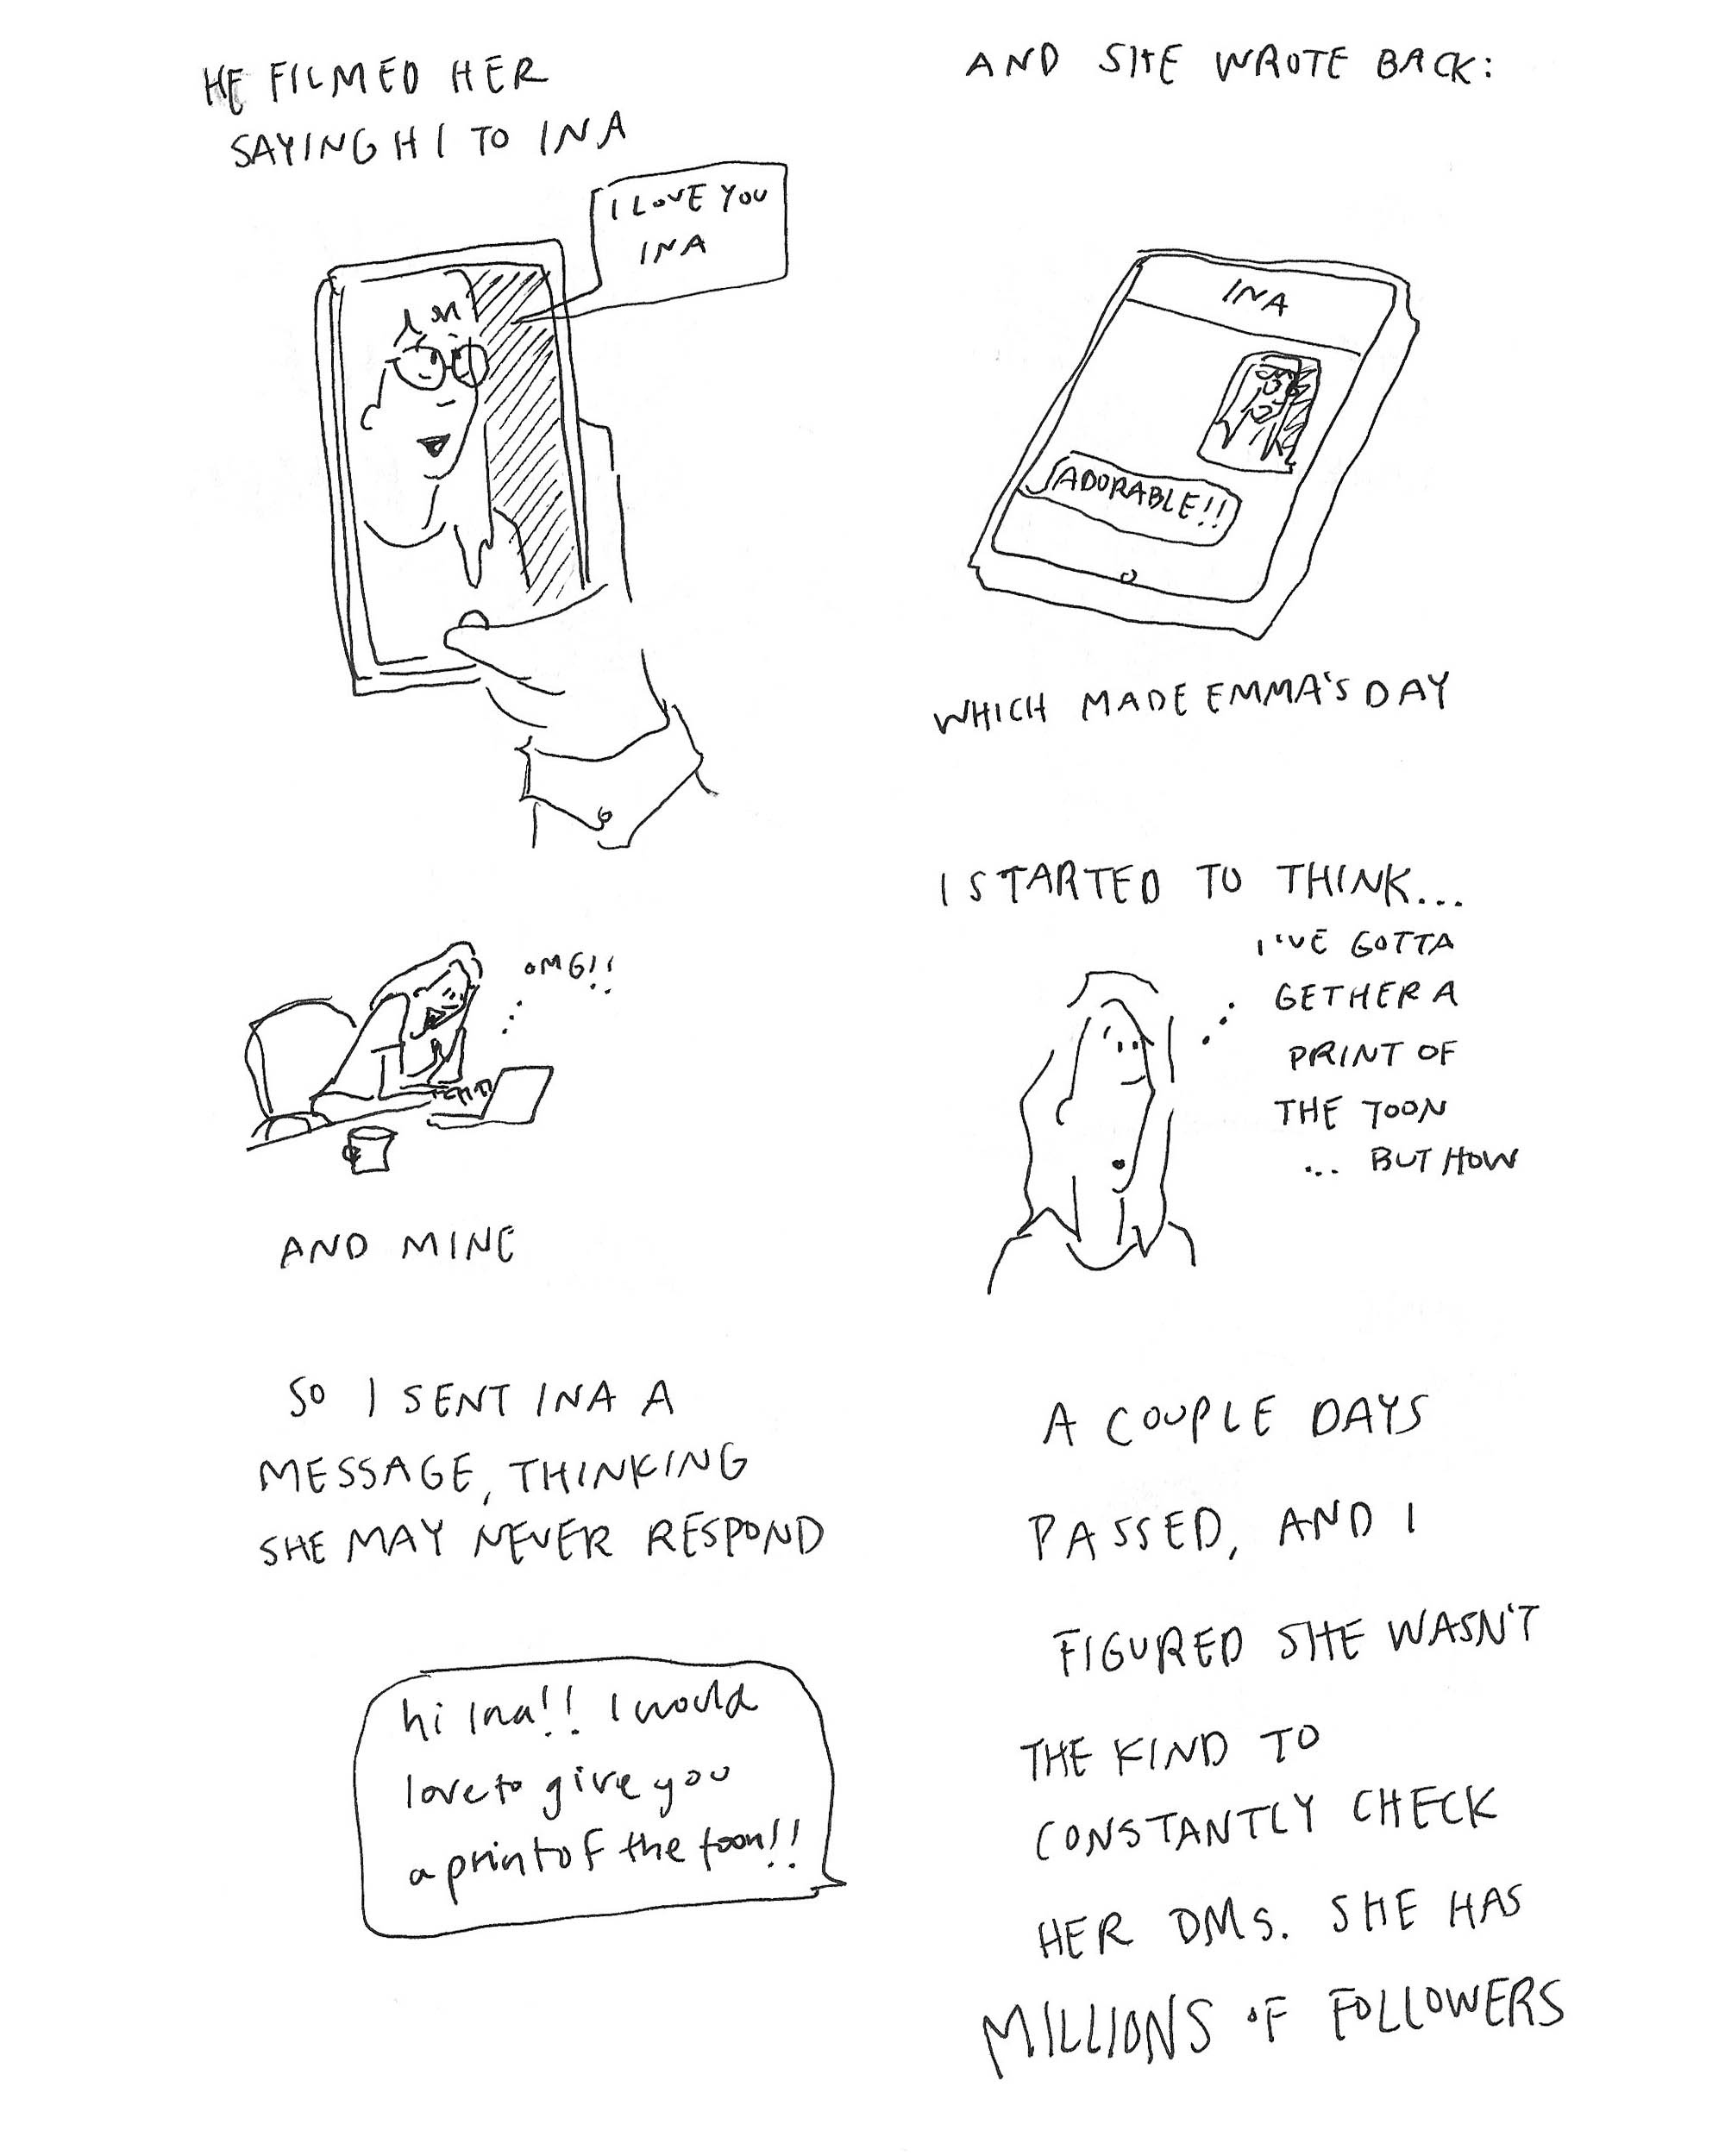 HE FILMED HER
SAYING HI TO INA
I LOVE YOU
INA
AND SHE WROTE BACK:
INA
ADORABLE!!
WHICH MADE EMMA'S DAY
OMG!!
AND MINE
I STARTED TO THINK...
I'VE GOTTA
GET HER A
PRINT OF
THE TOON
... BUT HOW
SO I SENT INA A
MESSAGE, THINKING
SHE MAY NEVER RESPOND
hi Ina!! I would
love to give you
a print of the toon!!
A COUPLE DAYS
PASSED, AND I
FIGURED SHE WASN'T
THE KIND TO
CONSTANTLY CHECK
HER DMS. SHE HAS
MILLIONS OF FOLLOWERS